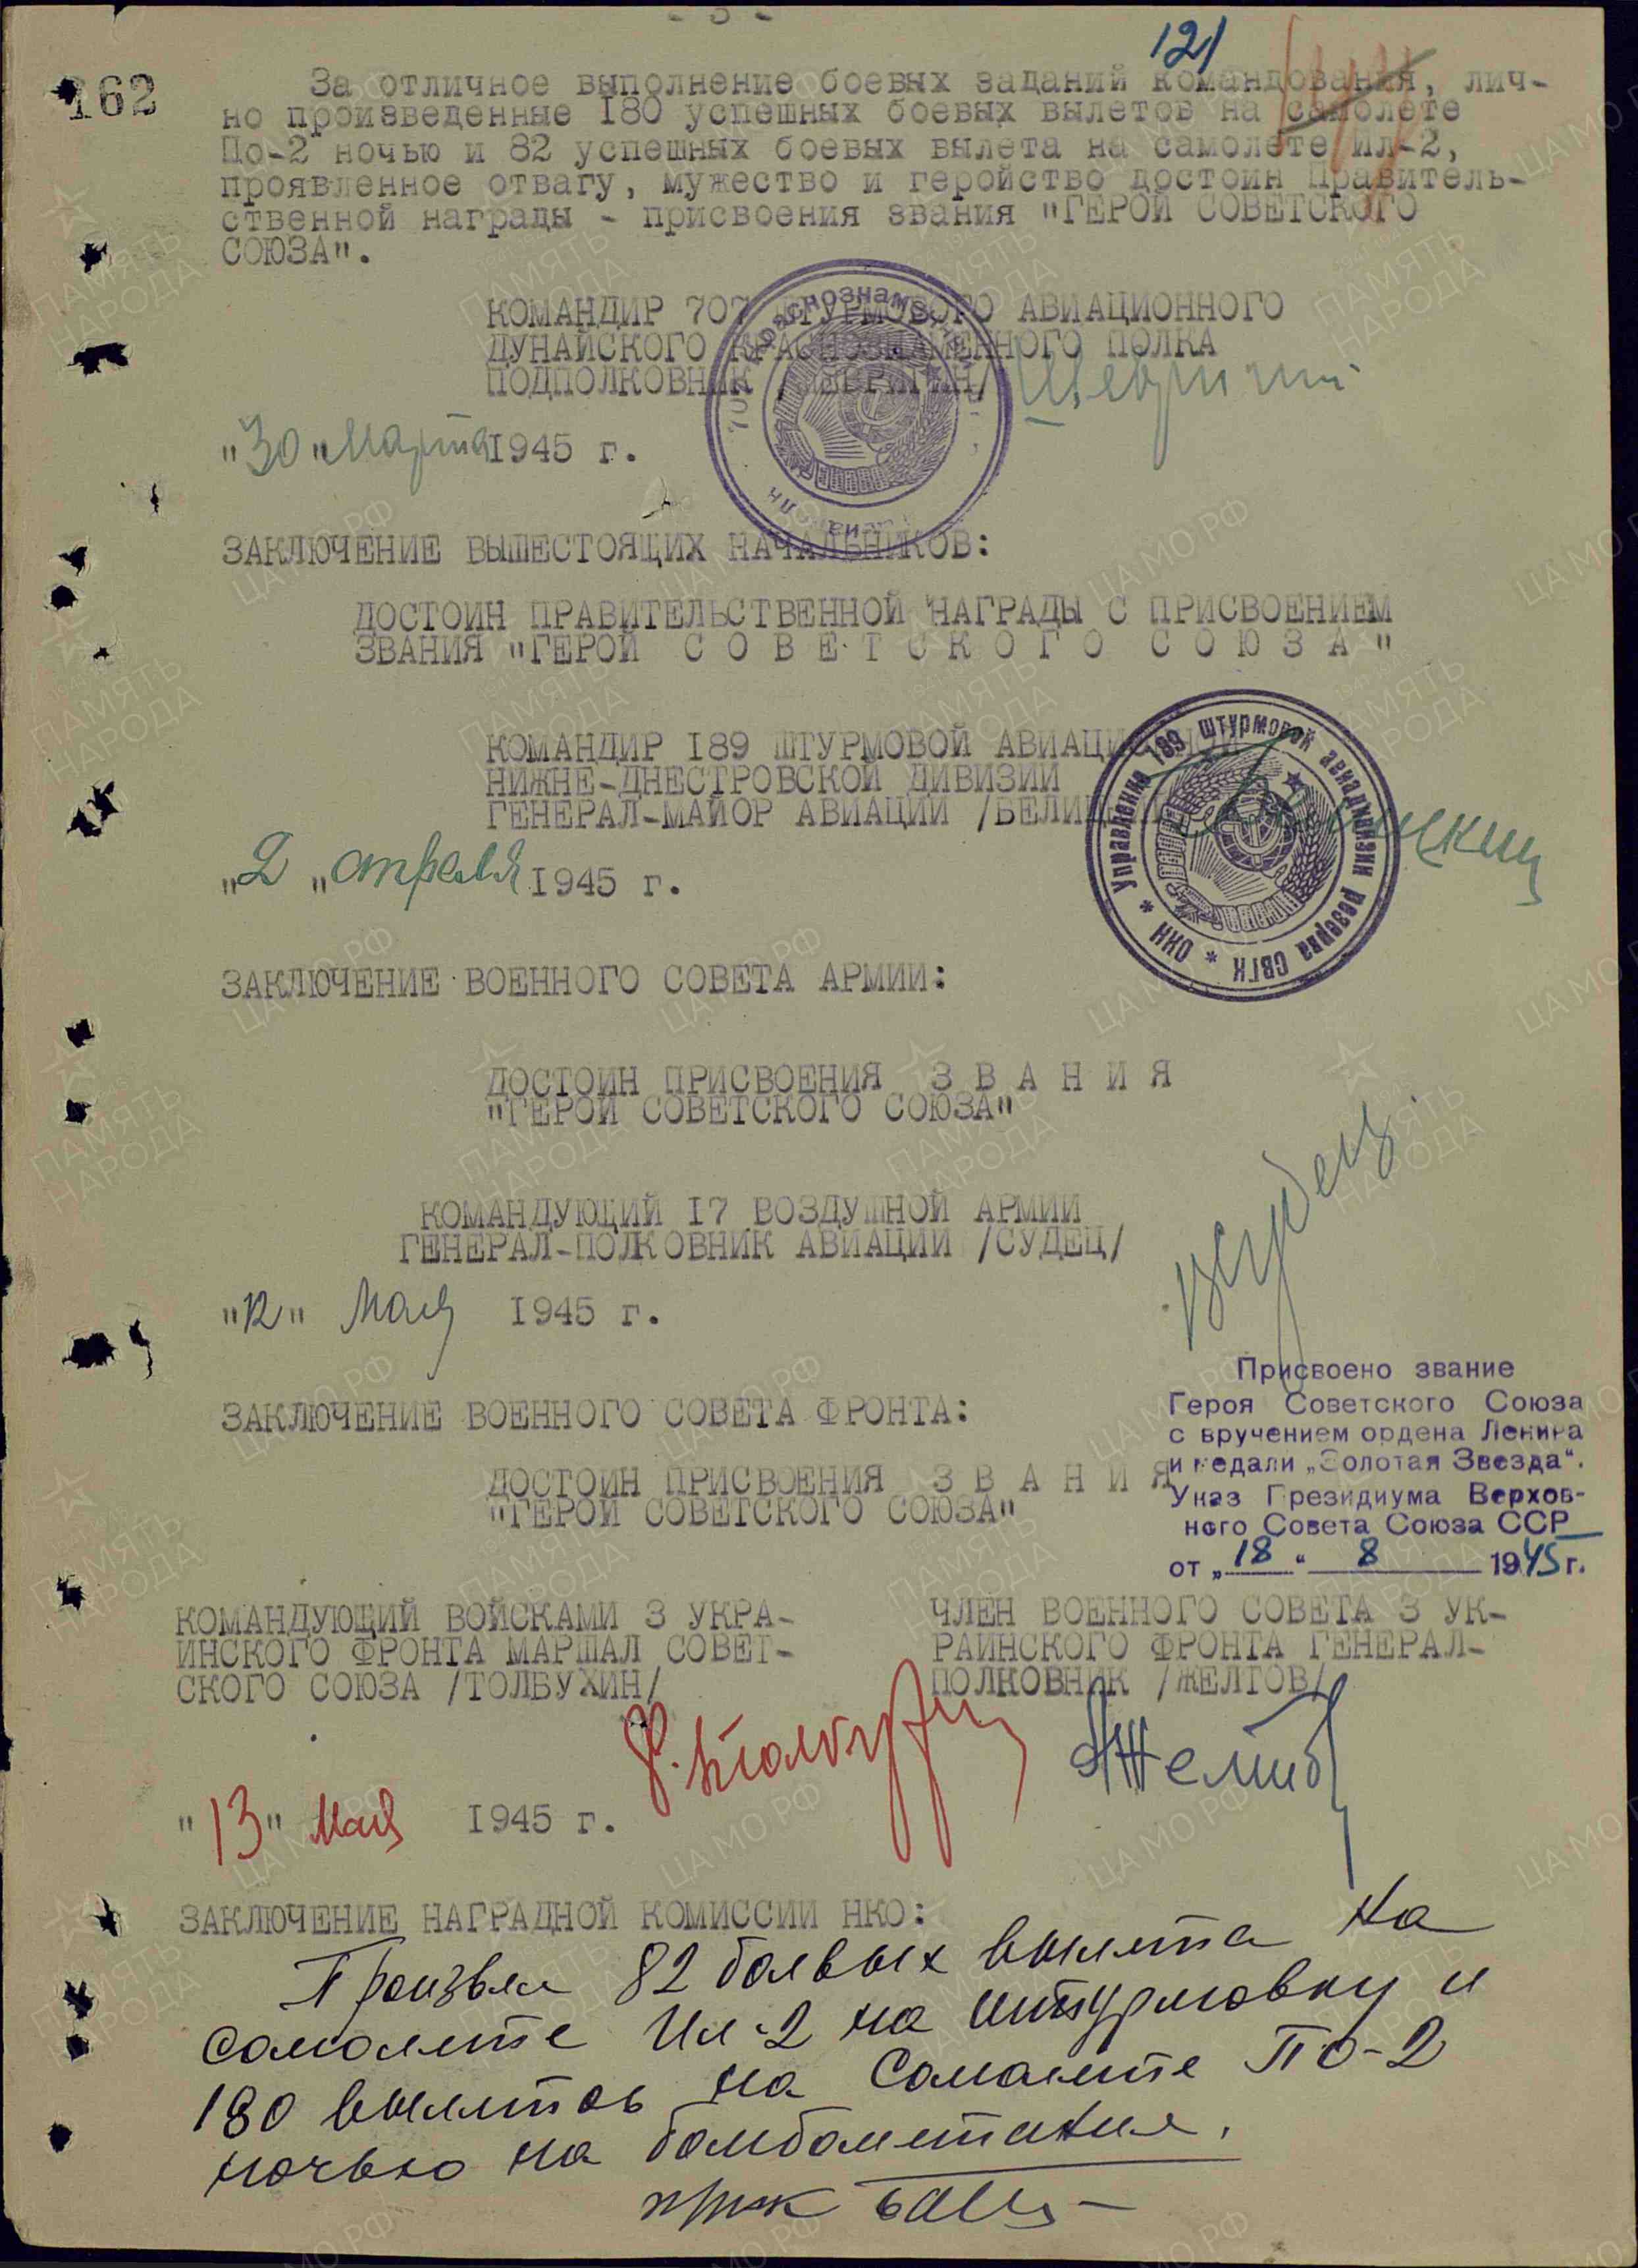 - 3 -
121
162
За отличное выполнение боевых заданий командования, лич-
но произведенные 180 успешных боевых вылетов на самолете
По-2 ночью и 82 успешных боевых вылета на самолете Ил-2,
проявленное отвагу, мужество и геройство достоин Правитель-
ственной награды - присвоения звания "ГЕРОЙ СОВЕТСКОГО
СОЮЗА".
КОМАНДИР 707 ШТУРМОВОГО АВИАЦИОННОГО
ДУНАЙСКОГО КРАСНОЗНАМЕННОГО ПОЛКА
ПОДПОЛКОВНИК /ШЕВРИГИН/
"30" Марта 1945 г.
ЗАКЛЮЧЕНИЕ ВЫШЕСТОЯЩИХ НАЧАЛЬНИКОВ:
ДОСТОИН ПРАВИТЕЛЬСТВЕННОЙ НАГРАДЫ С ПРИСВОЕНИЕМ
ЗВАНИЯ "ГЕРОЙ С О В Е Т С К О Г О С О Ю З А"
КОМАНДИР 189 ШТУРМОВОЙ АВИАЦИОННОЙ
НИЖНЕ-ДНЕСТРОВСКОЙ ДИВИЗИИ
ГЕНЕРАЛ-МАЙОР АВИАЦИИ /БЕЛИЦКИЙ/
Управление 189 штурмовой авиадивизии резерва СВГК * ОИН *
"2" апреля 1945 г.
ЗАКЛЮЧЕНИЕ ВОЕННОГО СОВЕТА АРМИИ:
ДОСТОИН ПРИСВОЕНИЯ З В А Н И Я
"ГЕРОЙ СОВЕТСКОГО СОЮЗА"
КОМАНДУЮЩИЙ 17 ВОЗДУШНОЙ АРМИИ
ГЕНЕРАЛ-ПОЛКОВНИК АВИАЦИИ /СУДЕЦ/
ВСудец
"12" Мая 1945 г.
ЗАКЛЮЧЕНИЕ ВОЕННОГО СОВЕТА ФРОНТА:
ДОСТОИН ПРИСВОЕНИЯ З В А Н И Я
"ГЕРОЙ СОВЕТСКОГО СОЮЗА"
Присвоено звание
Героя Советского Союза
с вручением ордена Ленина
и медали „Золотая Звезда".
Указ Президиума Верхов-
ного Совета Союза ССР
от „18" 8 1945 г.
КОМАНДУЮЩИЙ ВОЙСКАМИ 3 УКРА-
ИНСКОГО ФРОНТА МАРШАЛ СОВЕТ-
СКОГО СОЮЗА /ТОЛБУХИН/
ЧЛЕН ВОЕННОГО СОВЕТА 3 УК-
РАИНСКОГО ФРОНТА ГЕНЕРАЛ-
ПОЛКОВНИК /ЖЕЛТОВ/
Ф. Толбухин
АЖелтов
"13" Мая 1945 г.
ЗАКЛЮЧЕНИЕ НАГРАДНОЙ КОМИССИИ НКО:
Произвел 82 боевых вылета на
самолете Ил-2 на штурмовку и
180 вылетов на самолете ПО-2
ночью на бомбометание.
ПАМЯТЬ НАРОДА
ЦА МО РФ